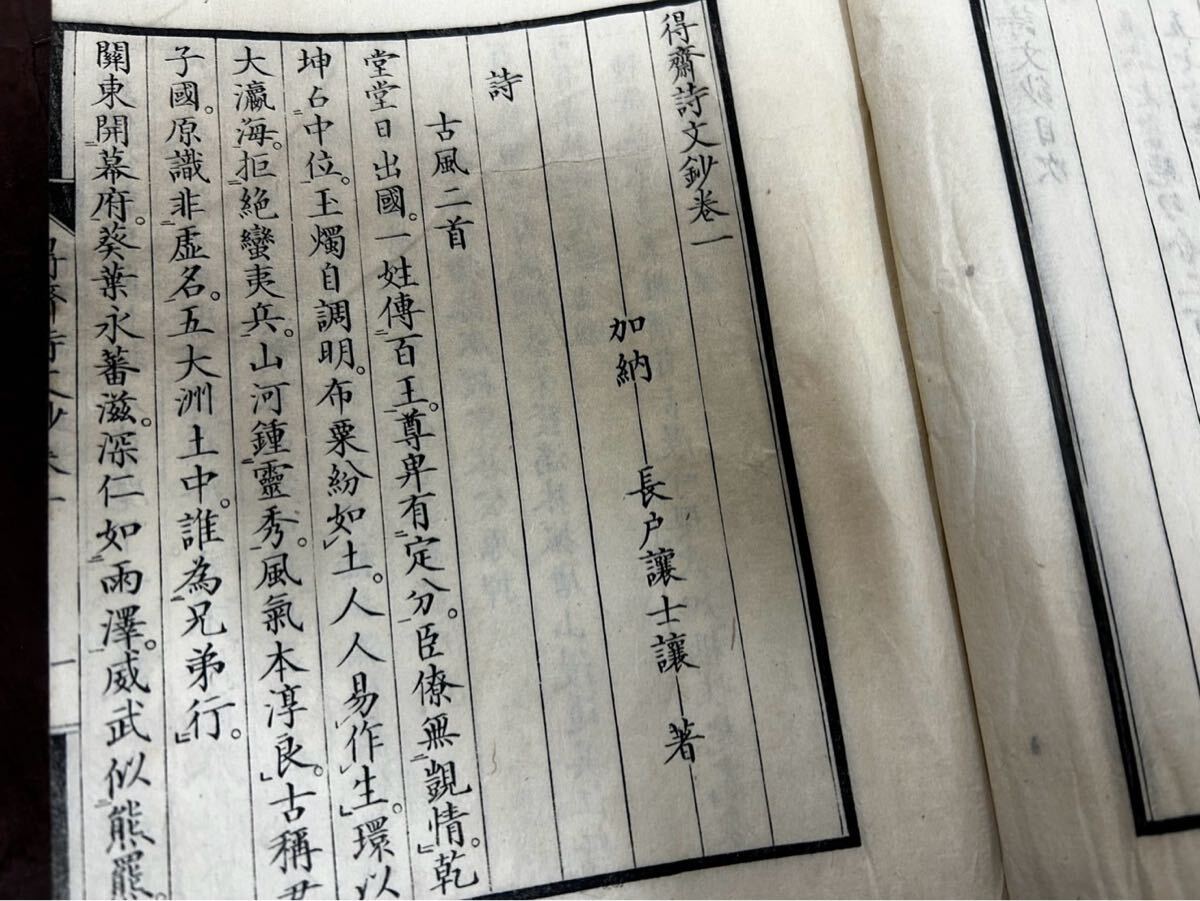 得齋詩文鈔卷一
加納 長戸讓士讓 著
詩
古風二首
堂堂日出國。一姓傳百王。尊卑有定分。臣僚無覬情。乾
坤占中位。玉燭自調明。布粟紛如土。人人易作生。環以
大瀛海。拒絶蠻夷兵。山河鍾靈秀。風氣本淳良。古稱君
子國。原識非虚名。五大洲土中。誰為兄弟行。
關東開幕府。葵葉永蕃滋。深仁如雨澤。威武似熊羆
詩文鈔目次